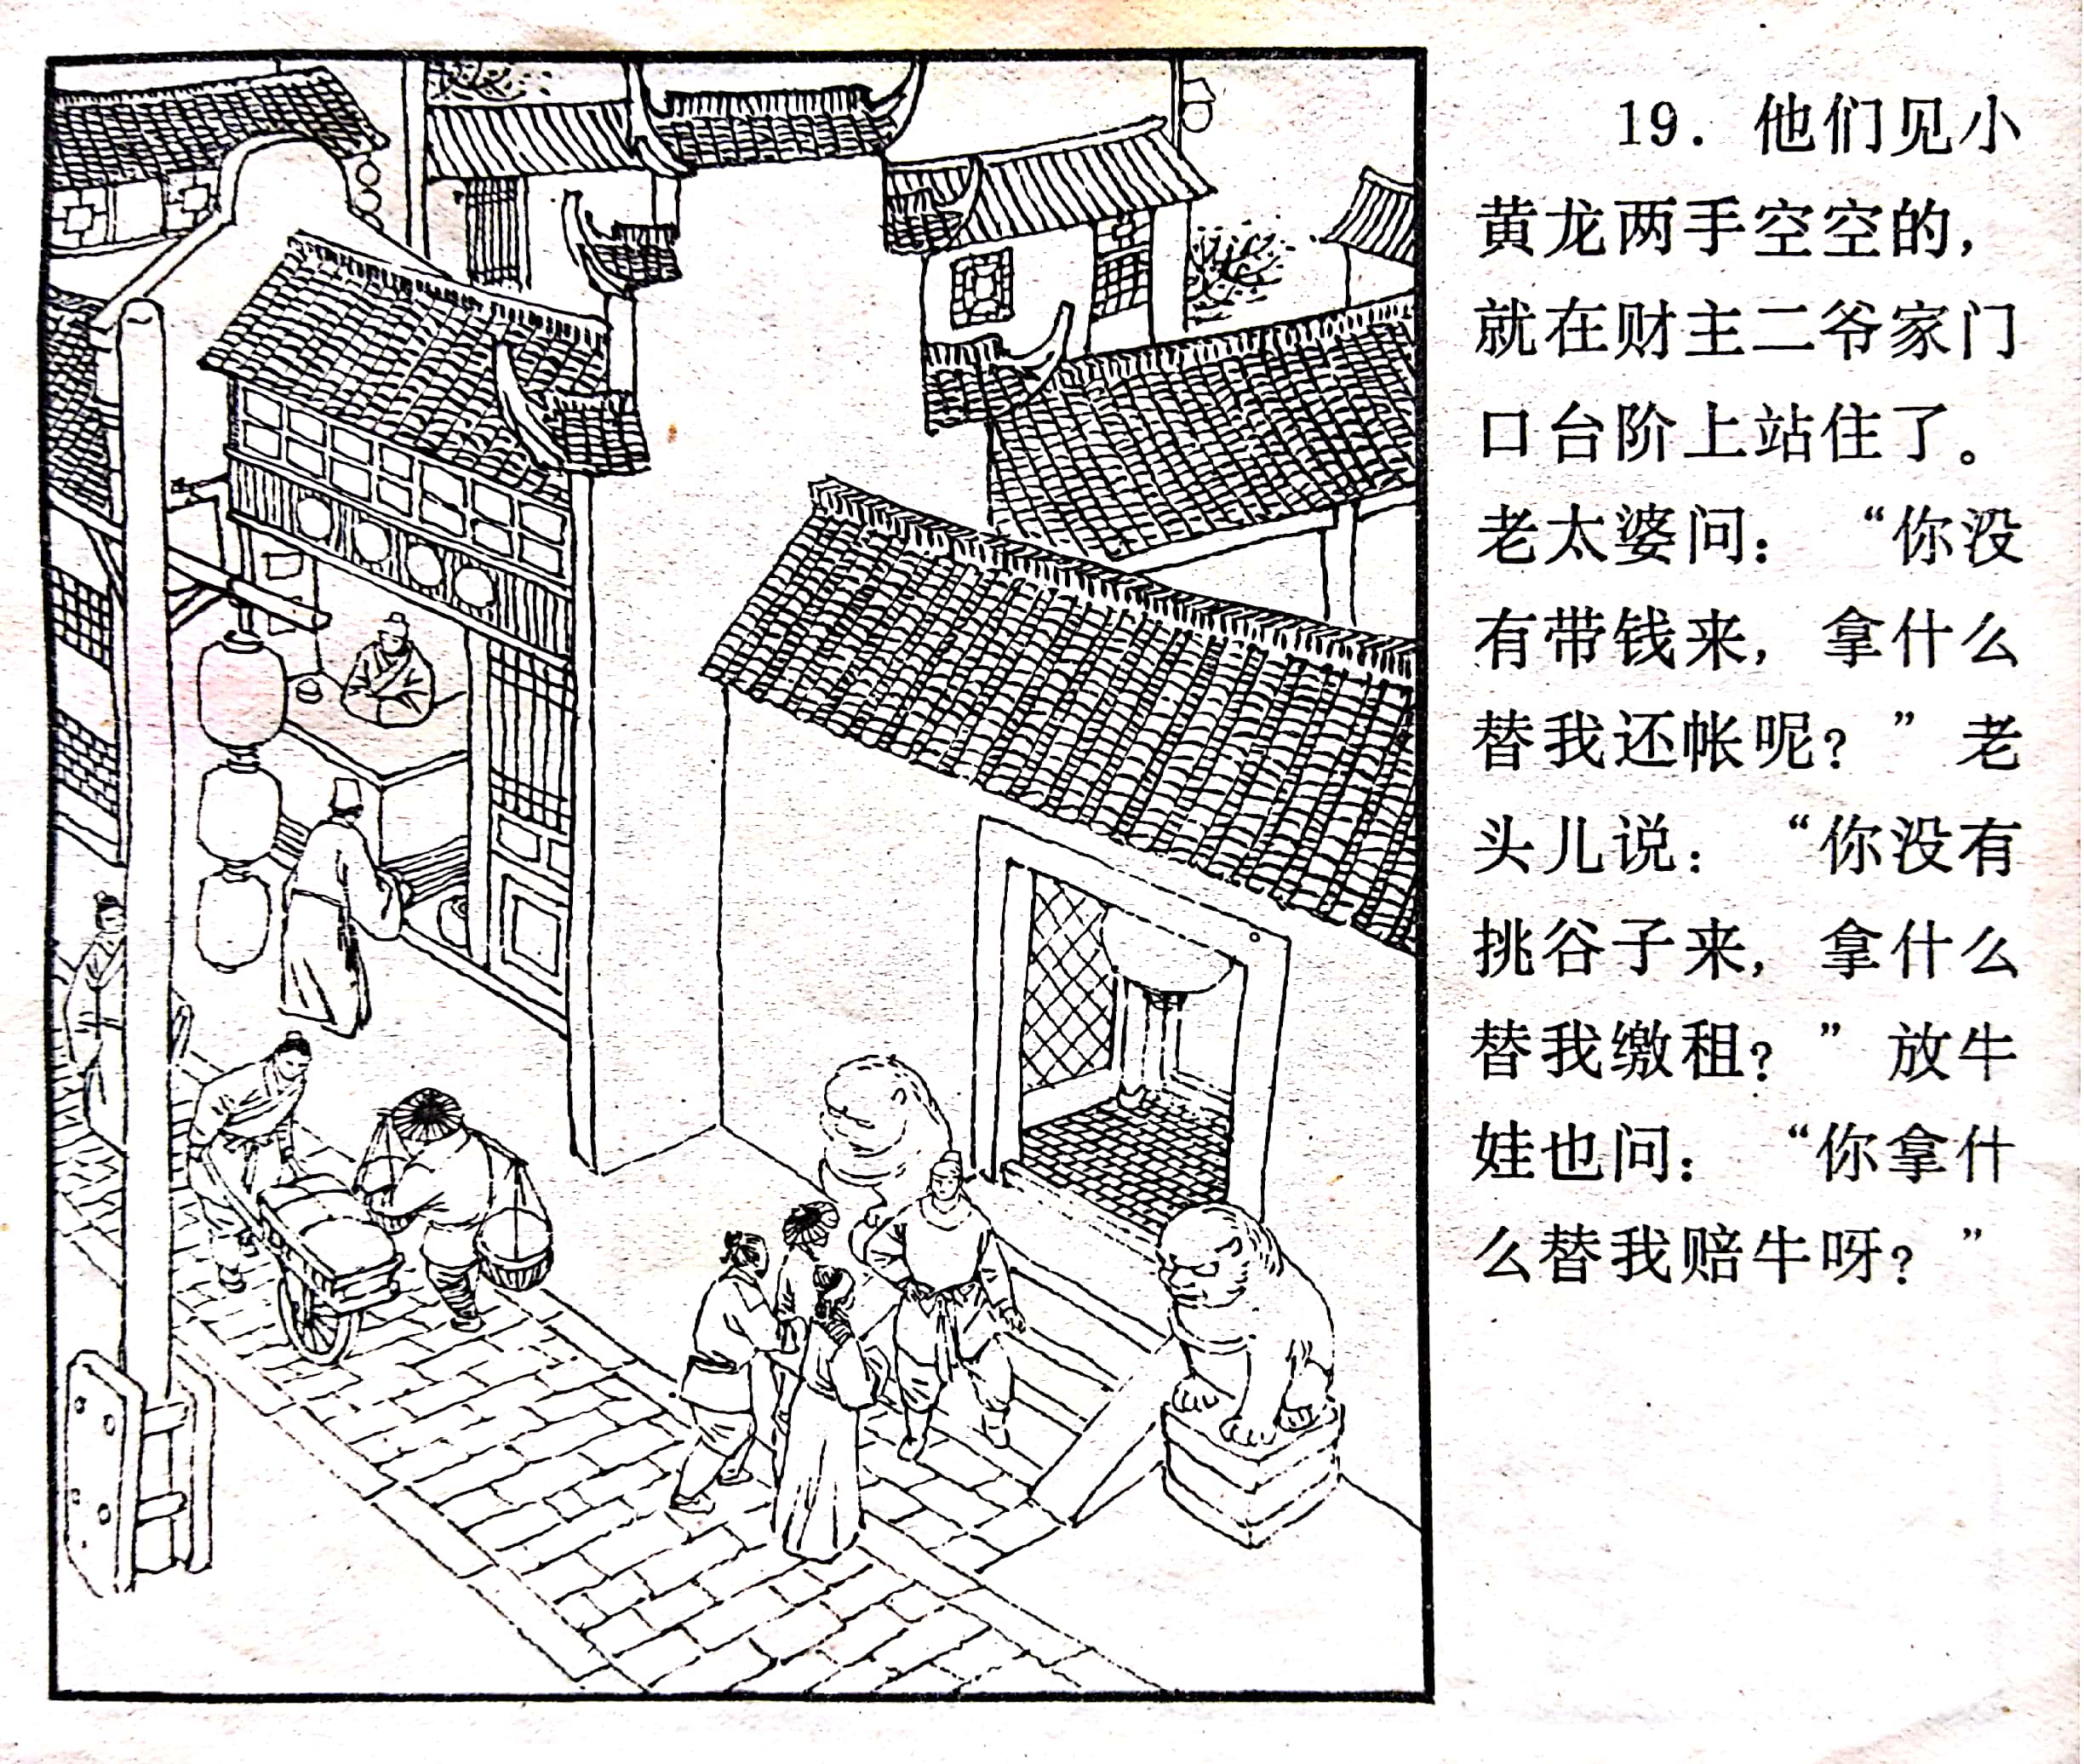 19．他们见小
黄龙两手空空的，
就在财主二爷家门
口台阶上站住了。
老太婆问：“你没
有带钱来，拿什么
替我还帐呢？”老
头儿说：“你没有
挑谷子来，拿什么
替我缴租？”放牛
娃也问：“你拿什
么替我赔牛呀？”